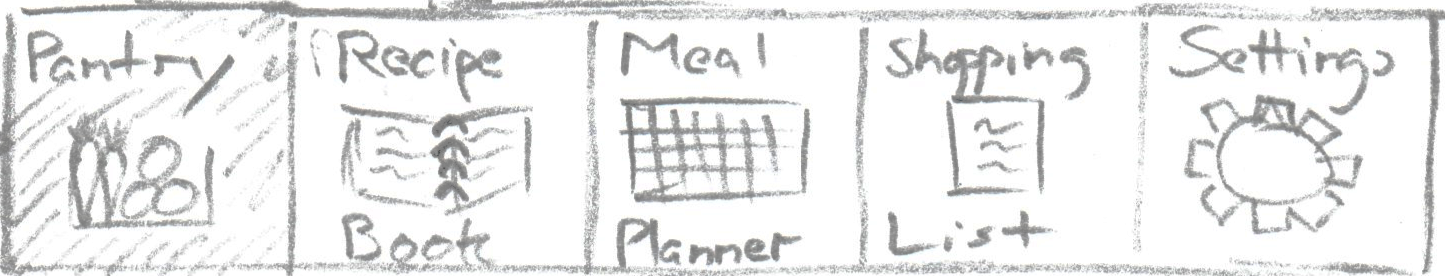 Pantry
Recipe
Book
Meal
Planner
Shopping
List
Settings